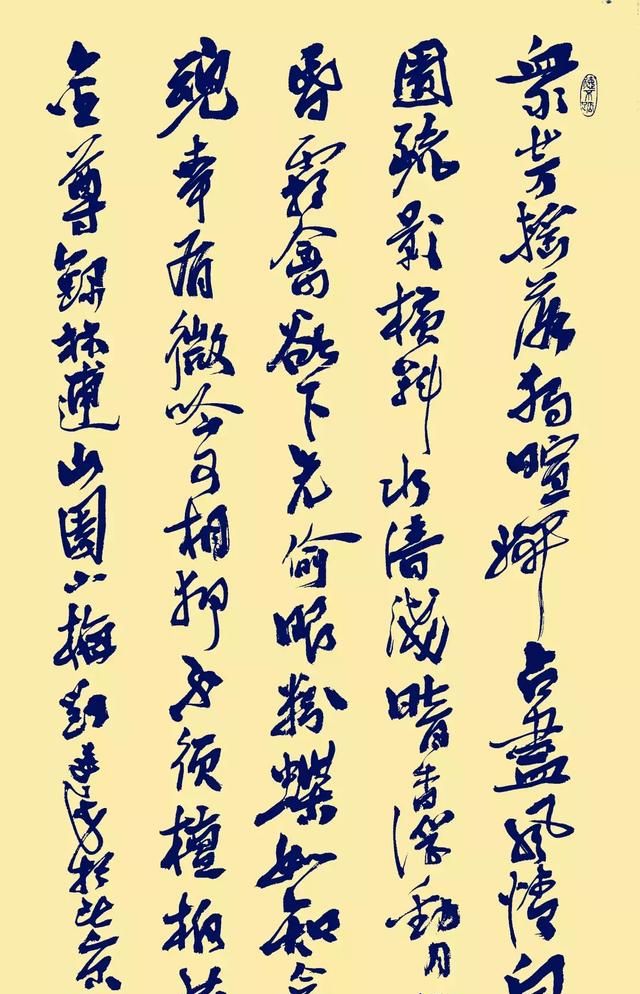 衆芳摇落獨暄妍占盡風情向
園疏影橫斜水清淺暗香浮動月
昏霜禽欲下先偷眼粉蝶如知合
魂幸有微吟可相狎不須檀板共
金尊錄林逋山園小梅於北京